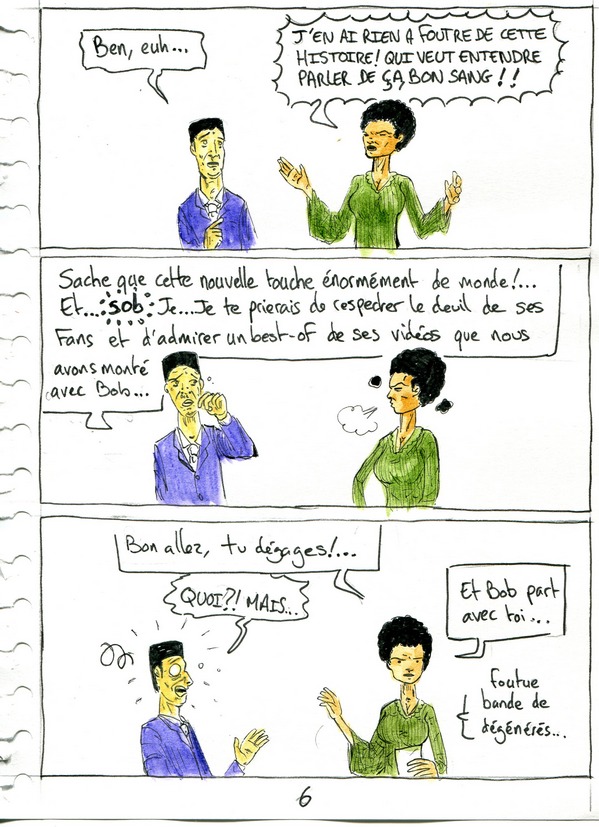 Ben, euh...
J'EN AI RIEN A FOUTRE DE CETTE
HISTOIRE! QUI VEUT ENTENDRE
PARLER DE ÇA, BON SANG!!
Sache que cette nouvelle touche énormément de monde!...
Et... sob Je...Je te prierais de respecter le deuil de ses
Fans et d'admirer un best-of de ses vidéos que nous
avons monté
avec Bob...
Bon allez, tu dégages!...
QUOI?! MAIS...
Et Bob part
avec toi...
foutue
bande de
dégénérés...
6